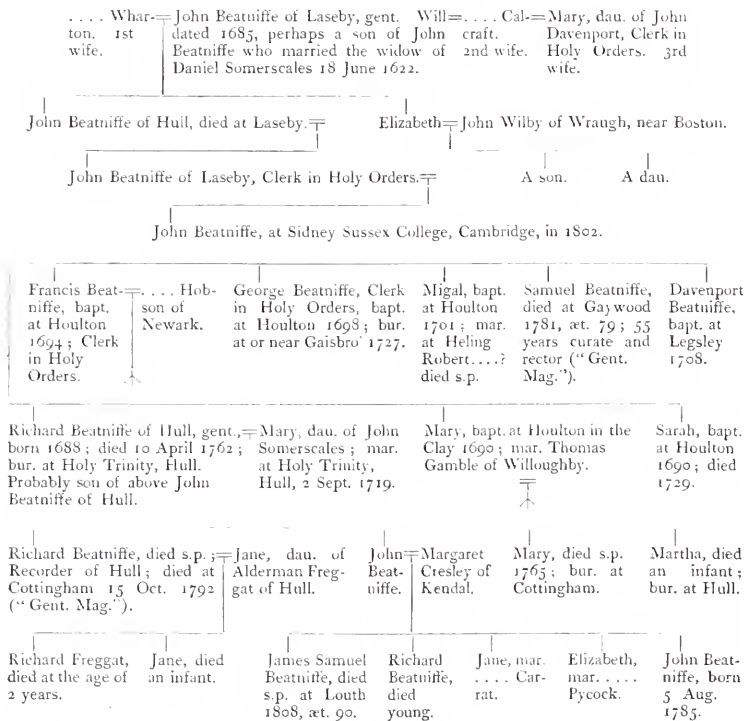 . . . . Whar-
ton. 1st
wife.
John Beatniffe of Laseby, gent. Will
dated 1685, perhaps a son of John
Beatniffe who married the widow of
Daniel Somerscales 18 June 1622.
. . . . Cal-
craft.
2nd wife.
Mary, dau. of John
Davenport, Clerk in
Holy Orders. 3rd
wife.
John Beatniffe of Hull, died at Laseby.
Elizabeth
John Wilby of Wraugh, near Boston.
John Beatniffe of Laseby, Clerk in Holy Orders.
A son.
A dau.
John Beatniffe, at Sidney Sussex College, Cambridge, in 1802.
Francis Beat-
niffe, bapt.
at Houlton
1694; Clerk
in Holy
Orders.
. . . . Hob-
son of
Newark.
George Beatniffe, Clerk
in Holy Orders, bapt.
at Houlton 1698; bur.
at or near Gaisbro' 1727.
Migal, bapt.
at Houlton
1701; mar.
at Heling
Robert....?
died s.p.
Samuel Beatniffe,
died at Gaywood
1781, æt. 79; 55
years curate and
rector ("Gent.
Mag.").
Davenport
Beatniffe,
bapt. at
Legsley
1708.
Richard Beatniffe of Hull, gent.,
born 1688; died 10 April 1762;
bur. at Holy Trinity, Hull.
Probably son of above John
Beatniffe of Hull.
Mary, dau. of John
Somerscales; mar.
at Holy Trinity,
Hull, 2 Sept. 1719.
Mary, bapt. at Houlton in the
Clay 1690; mar. Thomas
Gamble of Willoughby.
Sarah, bapt.
at Houlton
1690; died
1729.
Richard Beatniffe, died s.p.;
Recorder of Hull; died at
Cottingham 15 Oct. 1792
("Gent. Mag.").
Jane, dau. of
Alderman Freg-
gat of Hull.
John
Beat-
niffe.
Margaret
Cresley of
Kendal.
Mary, died s.p.
1765; bur. at
Cottingham.
Martha, died
an infant;
bur. at Hull.
Richard Freggat,
died at the age of
2 years.
Jane, died
an infant.
James Samuel
Beatniffe, died
s.p. at Louth
1808, æt. 90.
Richard
Beatniffe,
died
young.
Jane, mar.
. . . . Car-
rat.
Elizabeth,
mar. . . . .
Pycock.
John Beat-
niffe, born
5 Aug.
1785.